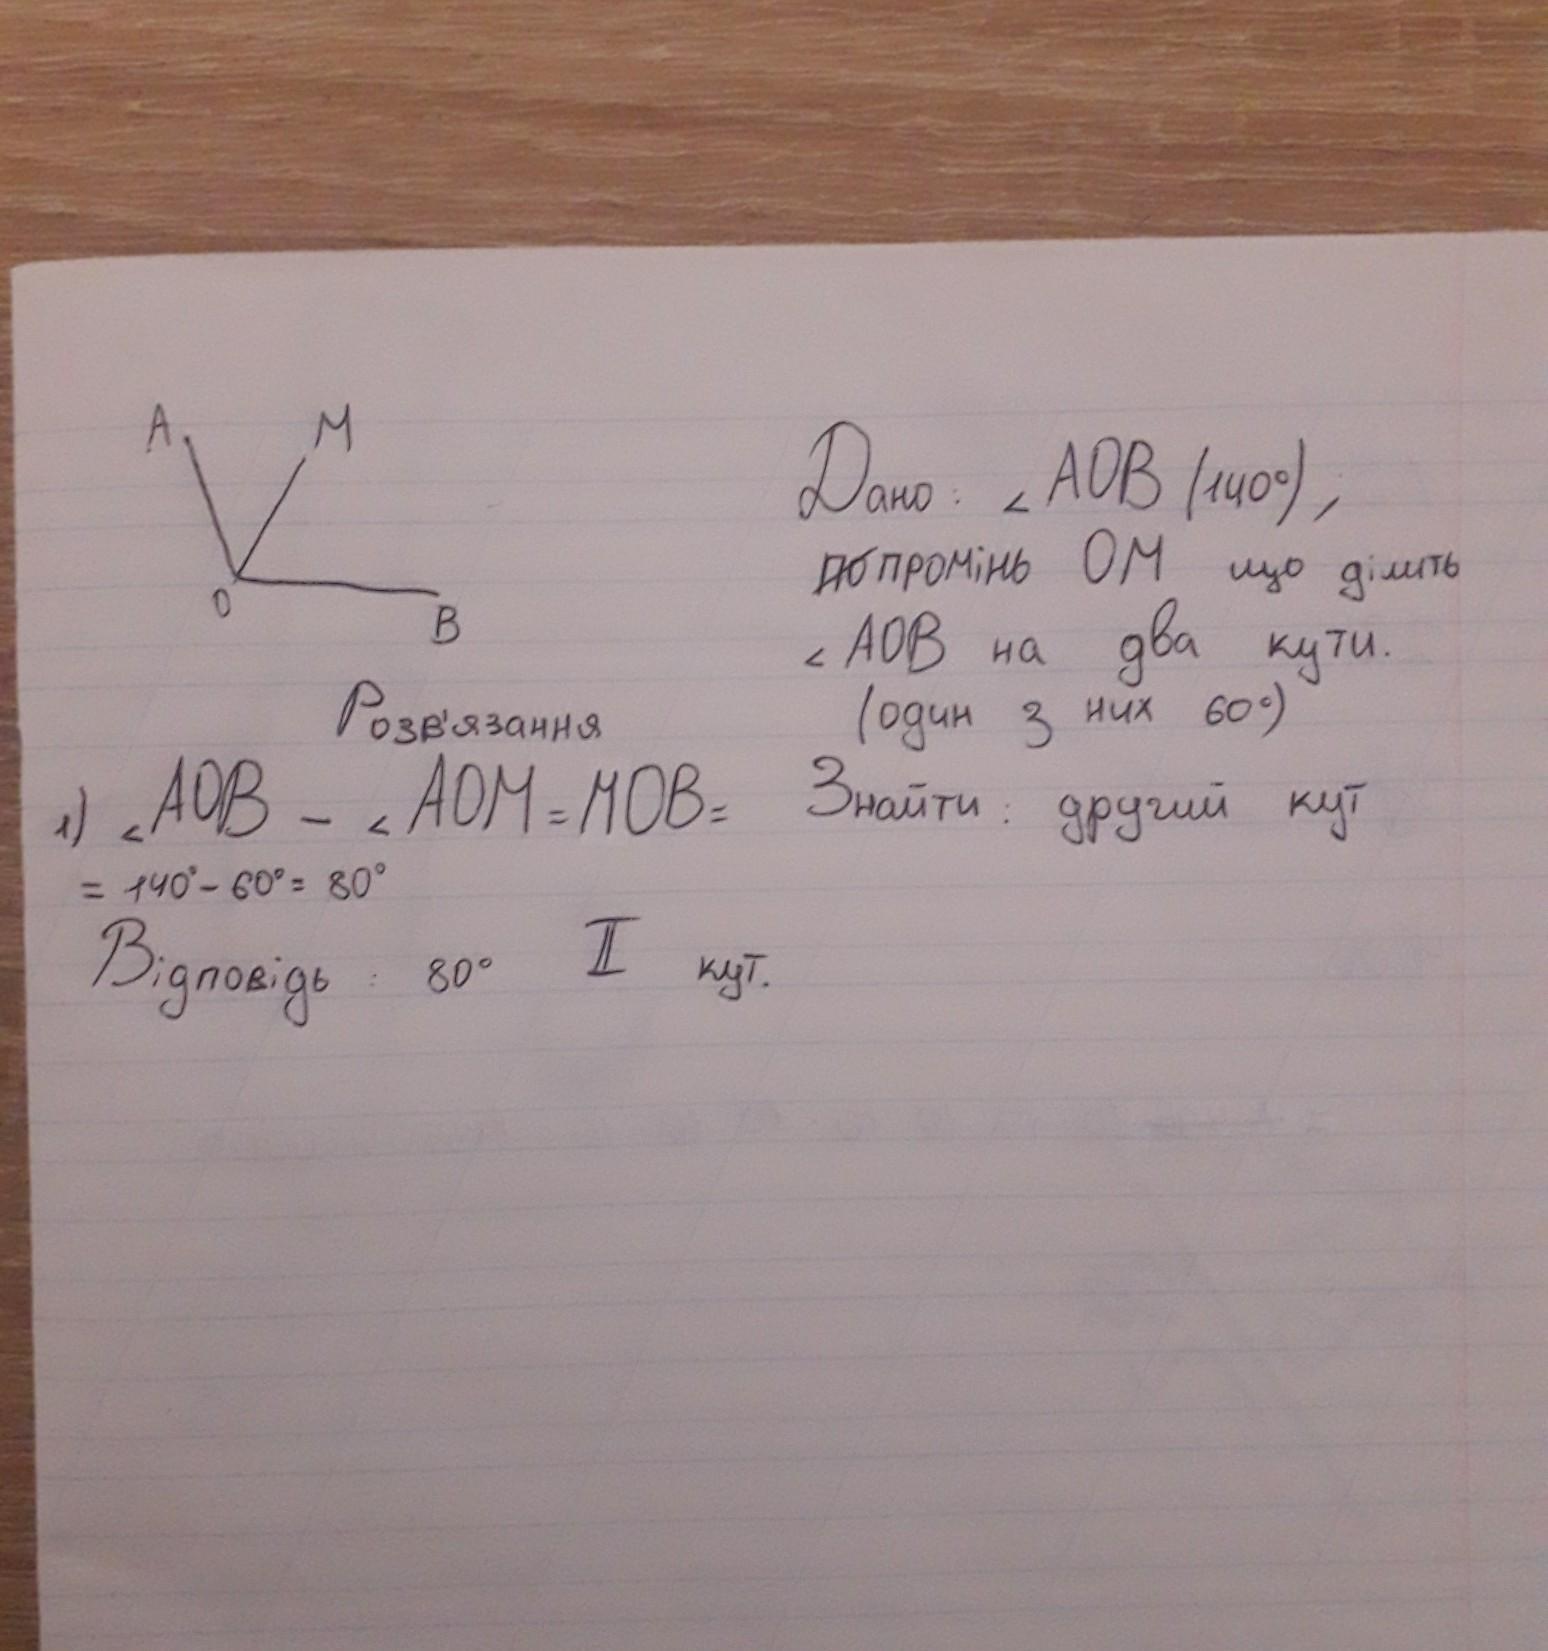 A M
O
B
Дано: < AOB (140°),
промінь OM що ділить
< AOB на два кути.
(один з них 60°)
Знайти: другий кут
Розв'язання
1) < AOB - < AOM = MOB =
= 140° - 60° = 80°
Відповідь: 80° II кут.